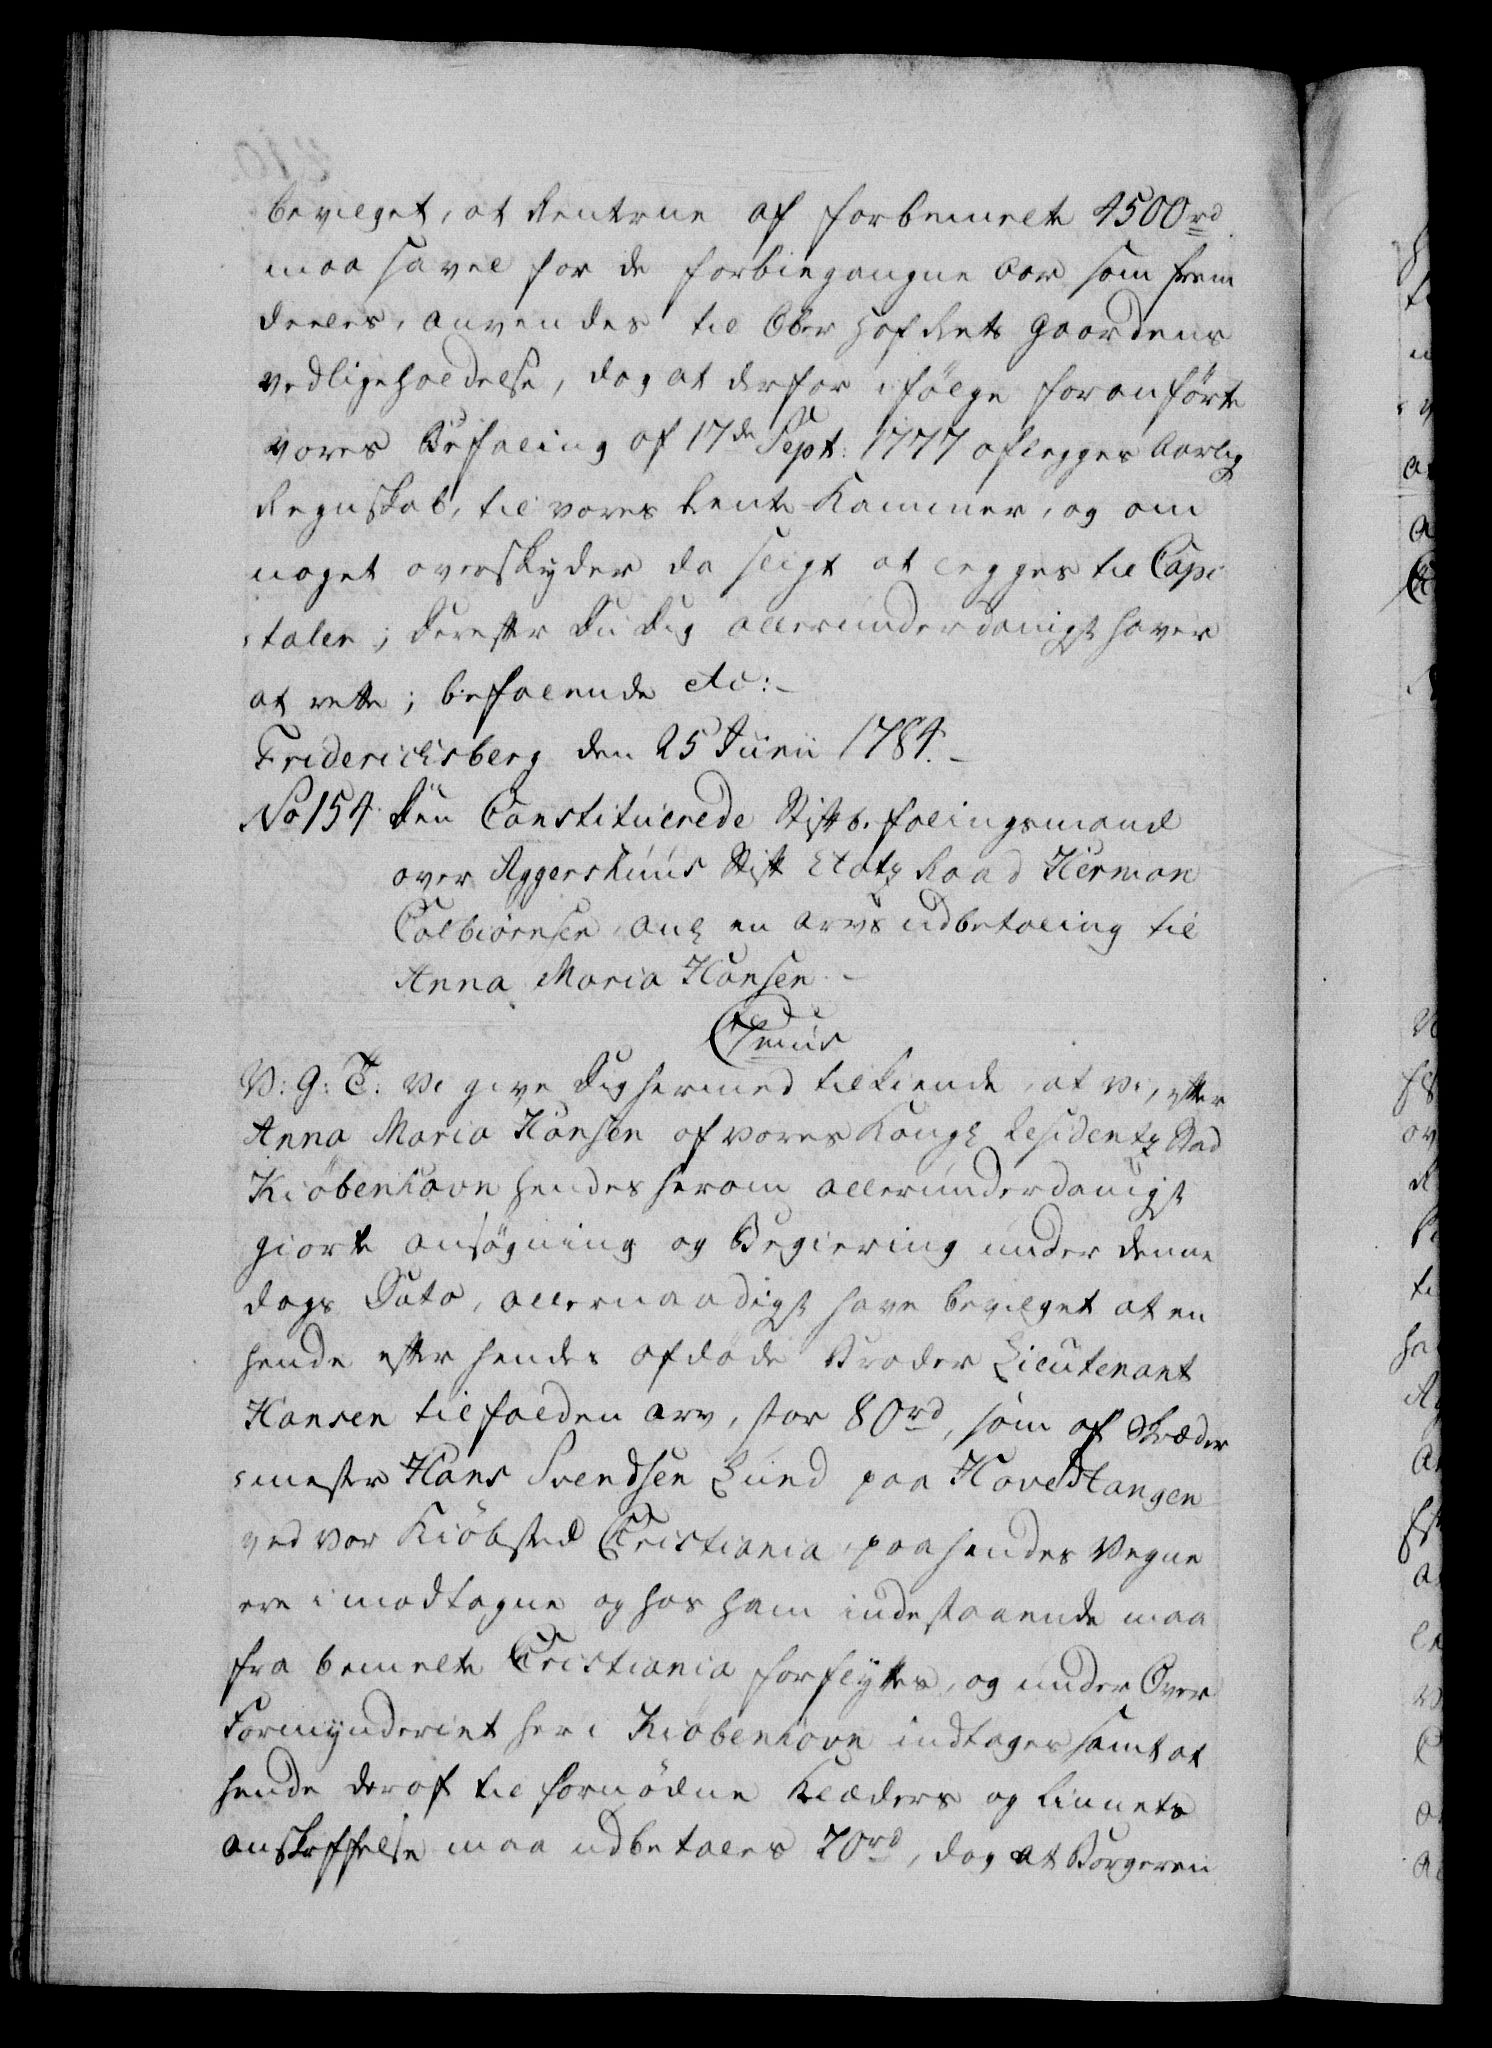 bevilget, at Renterne af forbemelte 4500rd
maa savel for de forbiegangne Aar som frem
deeles, anvendes til Ober Hof Rets Gaardens
vedligeholdelse, dog at derfor i følge foranførte
vores Befaling af 17de Sept: 1777 aflegges Aarlig
Regnskab, til vores Rente Kammer, og om
noget overskyder da sligt at legges til Capi
-talen; Derefter Du Dig allerunderdanigst haver
at rette; befalende etc:-
Friderichsberg den 25 Junii 1784.-
No 154. Den Constituerede Stiftbefalingsmand
over Aggershuus Stift Etatz Raad Herman
Colbiørnsen, anl en arvs udbetaling til
Anna Maria Hansen.-
V: G: T: Vi give Dig hermed tilkiende, at vi, efter
Anna Maria Hansen af vores Kongl Residentz Stad
Kiøbenhavn hendes herom allerunderdanigst
giorte ansøgning og Begiering under denne
dags Dato, allernaadigst have bevilget at en
hende efter hendes afdøde Broder Lieutenant
Hansen tilfalden arv, stor 80rd, som af Skræder
-mester Hans Svendsen Lund paa Hovedtangen
ved vor Kiøbsted Christiania, paa hendes Vegne
ere imodtagne og hos ham indestaaende maa
fra bemelte Christiania forflyttes, og under Over
Formynderiet her i Kiøbenhavn indtages samt at
hende deraf til fornødne Klæders og Linnets
anskaffelse maa udbetales 20rd, dog at Borgeren